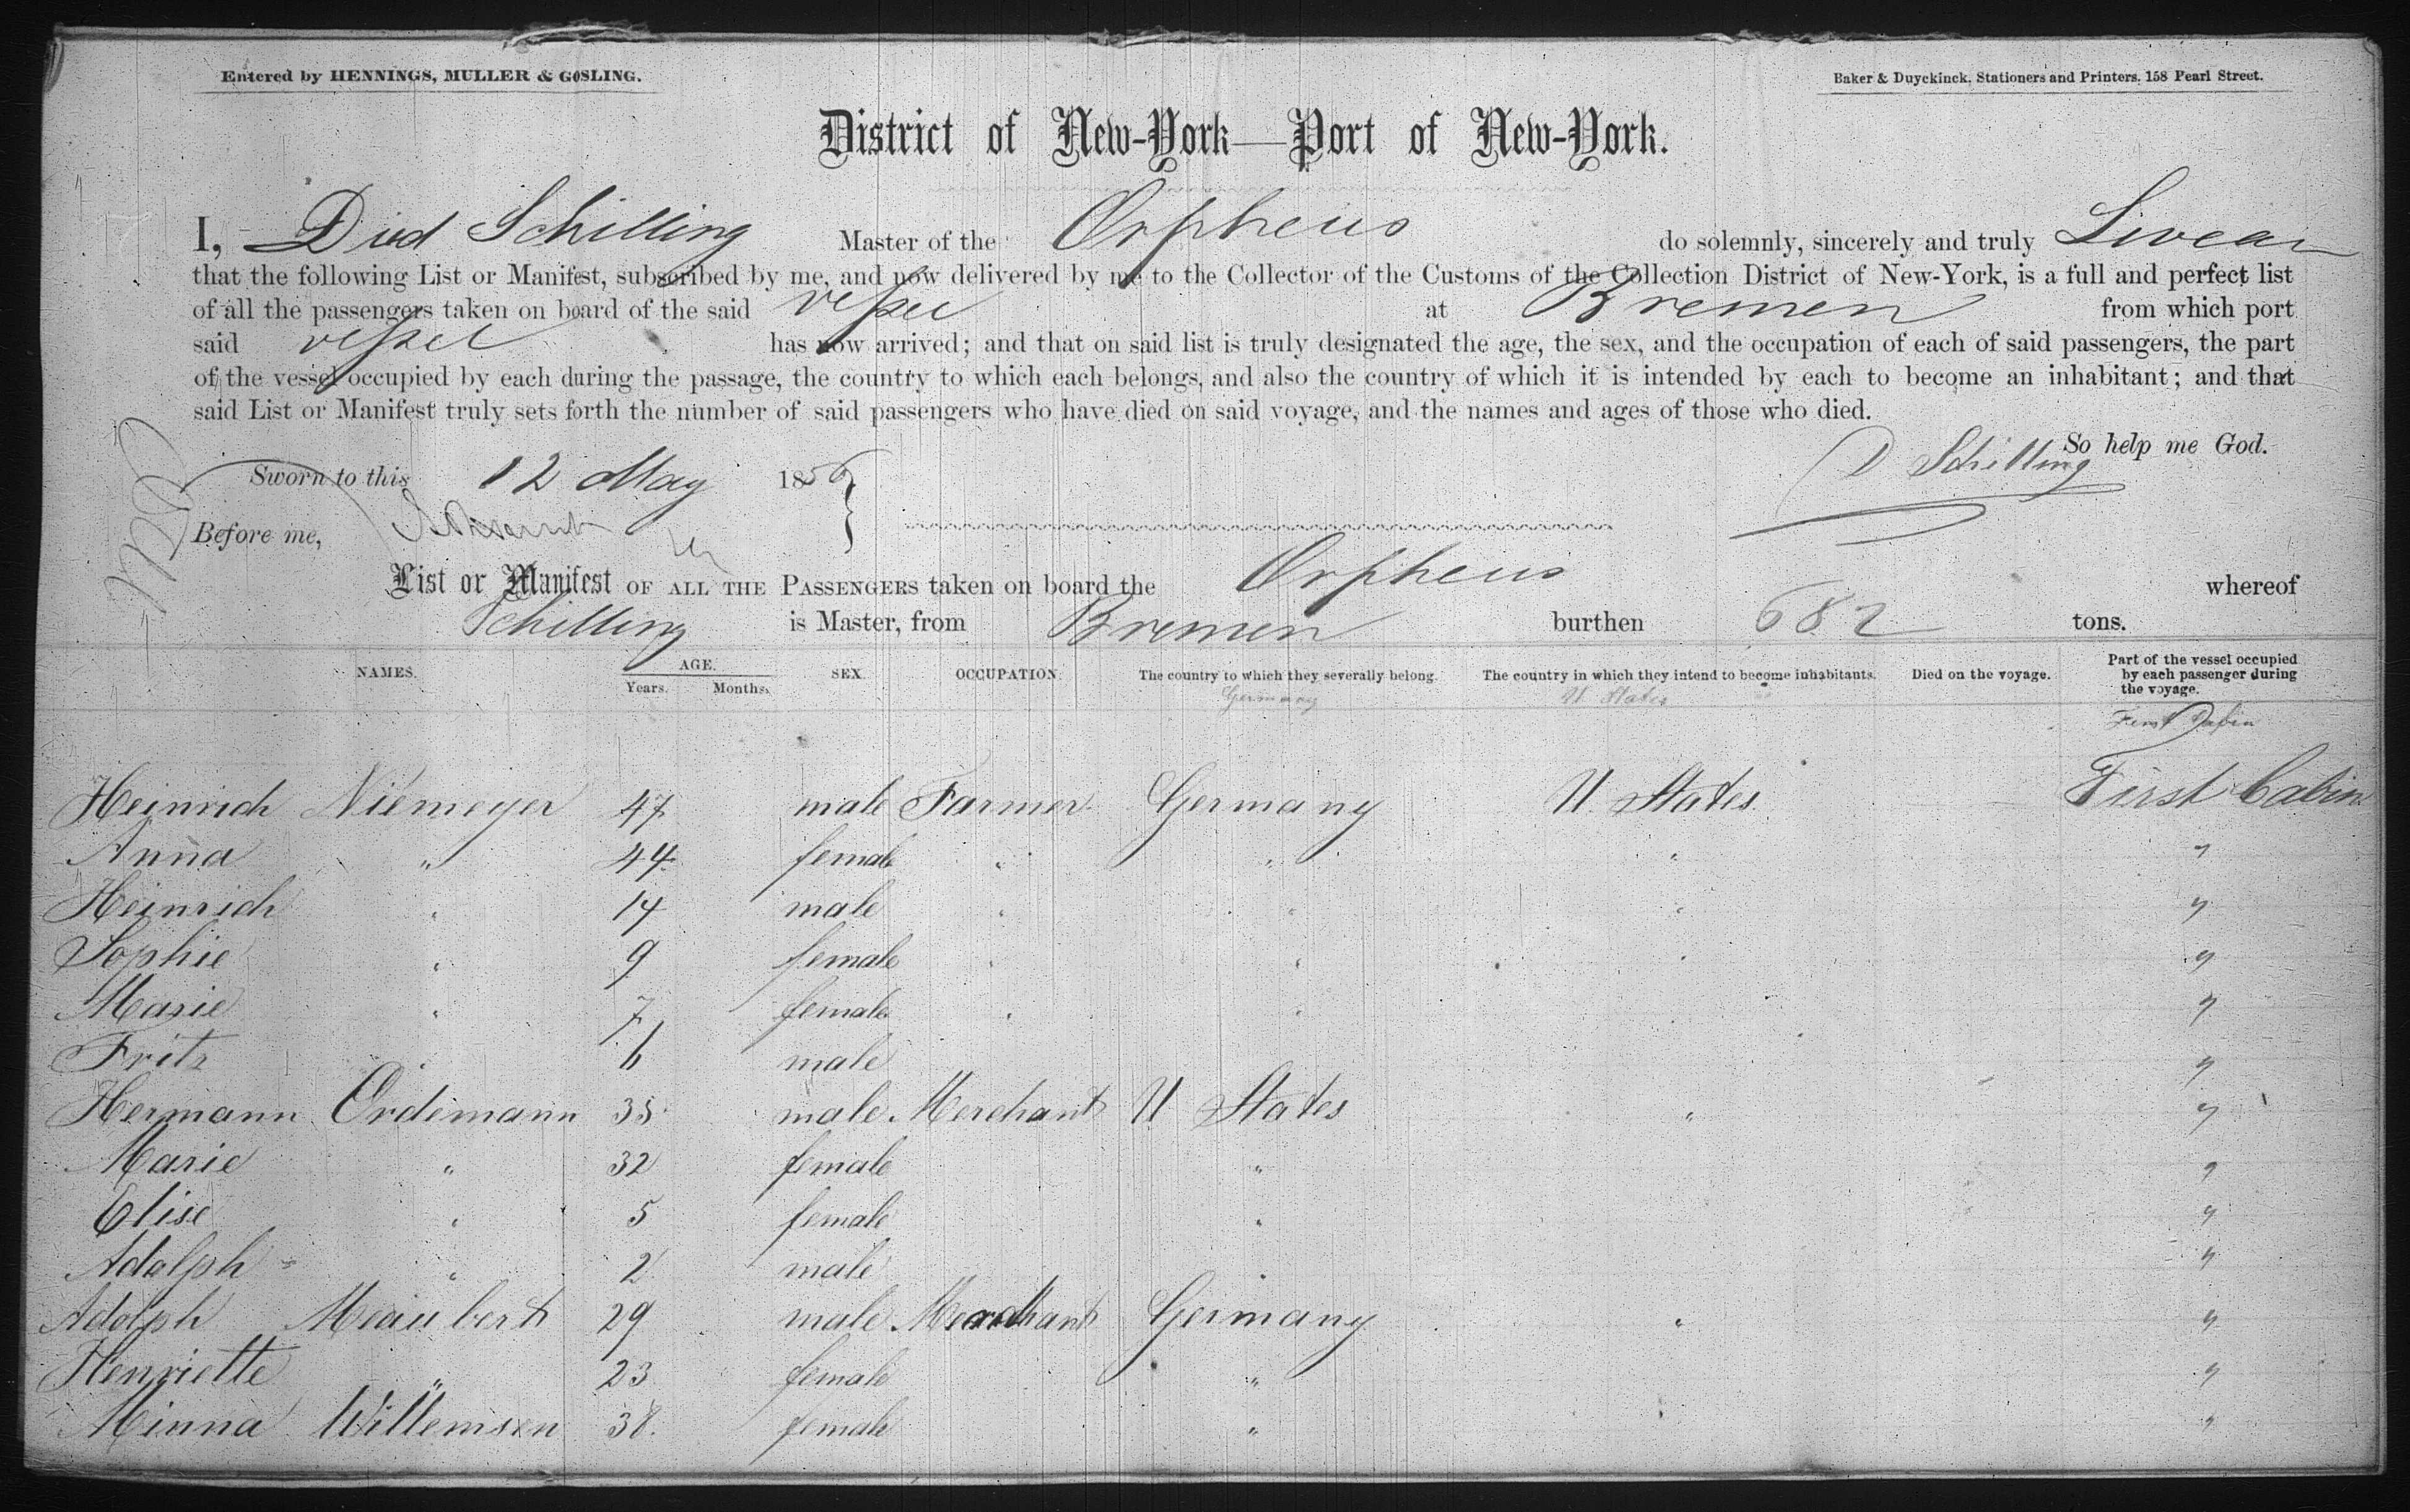 Entered by HENNINGS, MULLER & GOSLING.
Baker & Duyckinck, Stationers and Printers, 158 Pearl Street.
District of New-York—Port of New-York.
I, Died Schilling Master of the Orpheus do solemnly, sincerely and truly Swear
that the following List or Manifest, subscribed by me, and now delivered by me to the Collector of the Customs of the Collection District of New-York, is a full and perfect list
of all the passengers taken on board of the said vessel at Bremen from which port
said vessel has now arrived; and that on said list is truly designated the age, the sex, and the occupation of each of said passengers, the part
of the vessel occupied by each during the passage, the country to which each belongs, and also the country of which it is intended by each to become an inhabitant; and that
said List or Manifest truly sets forth the number of said passengers who have died on said voyage, and the names and ages of those who died.
So help me God.
Sworn to this 12 May 1856 D Schilling
Before me,
List or Manifest OF ALL THE PASSENGERS taken on board the Orpheus whereof
Schilling is Master, from Bremen burthen 682 tons.
NAMES. AGE. Years. Months. SEX. OCCUPATION. The country to which they severally belong. The country in which they intend to become inhabitants. Died on the voyage. Part of the vessel occupied by each passenger during the voyage.
Germany U States First Cabin
Heinrich Niemeyer 47 male Farmer Germany U States First Cabin
Anna " 44 female " " " "
Heinrich " 14 male " " " "
Sophie " 9 female " " " "
Marie " 7 female " " "
Fritz " 6 male "
Hermann Ordemann 35 male Merchant U States " "
Marie " 32 female " "
Elise " 5 female " "
Adolph " 2 male " "
Adolph Meaubert 29 male Merchant Germany " "
Henriette " 23 female " "
Minna Willemsen 38 female " "